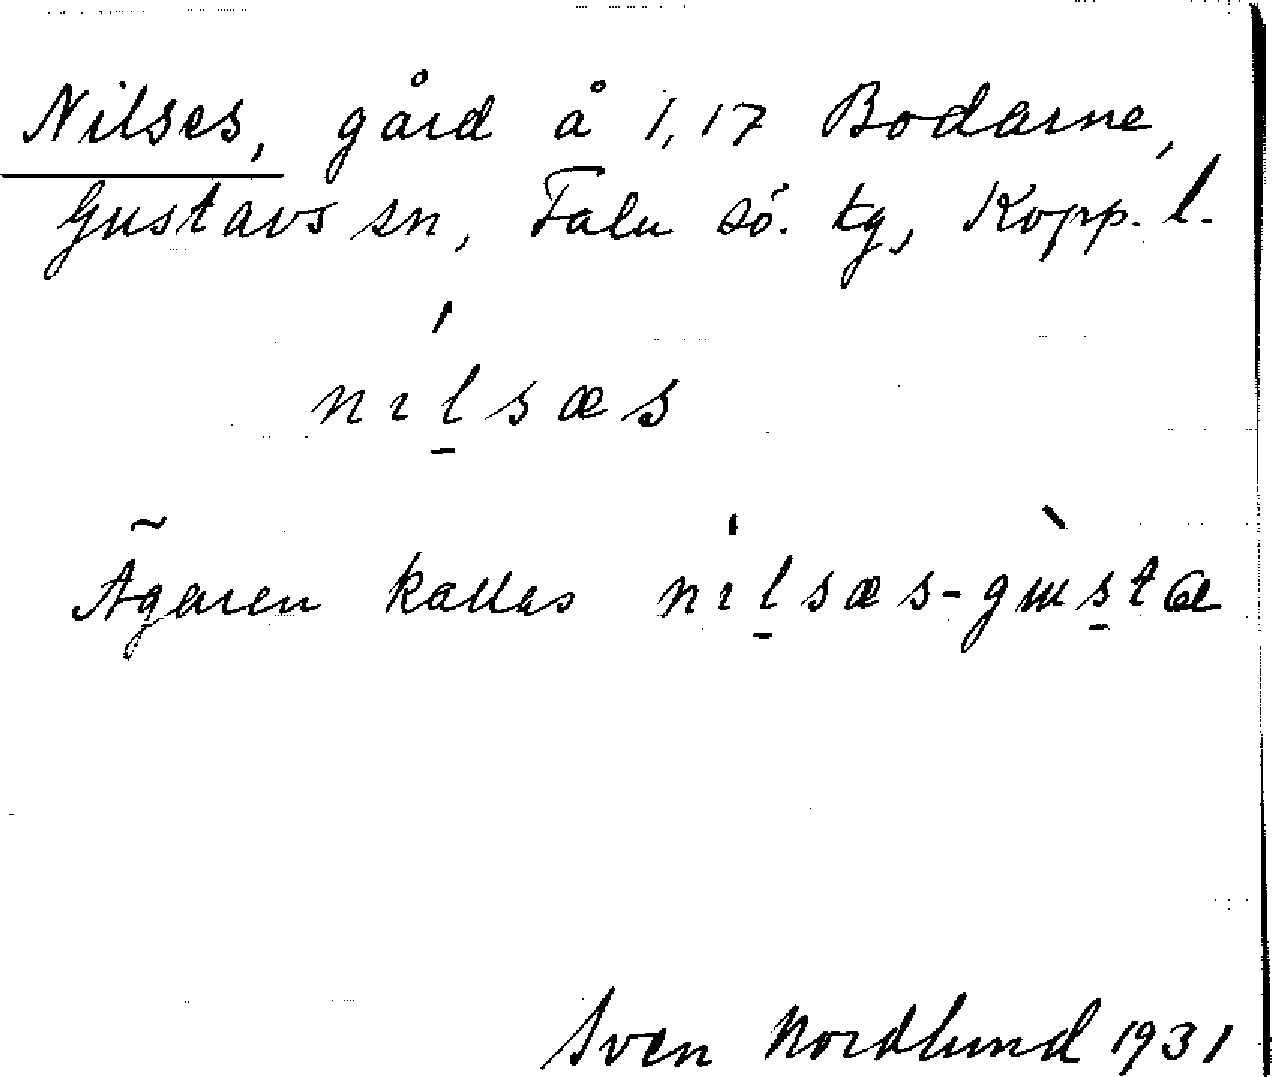 Nilses, gård å 1,17 Bodarne,
Gustavs sn, Falu sö. tg, Kopp. l.
nılsæs
Ägaren kallas nılsæs-gɯsta
Sven Nordlund 1931